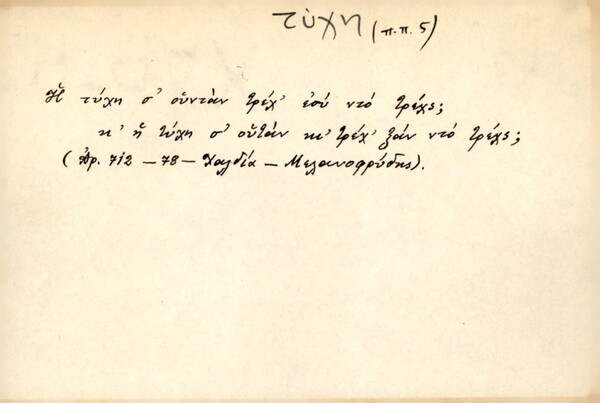 τύχη (π.π. 5)
Ἡ τύχη σ' οὕνταν τρέχ' ἐσύ ντό τρέχς;
κ' ἡ τύχη σ' οὕταν κι' τρέχ' ξάν ντό τρέχς;
(Ἀρ. 712 – 78 – Χαλδία – Μελανοφρύδης).